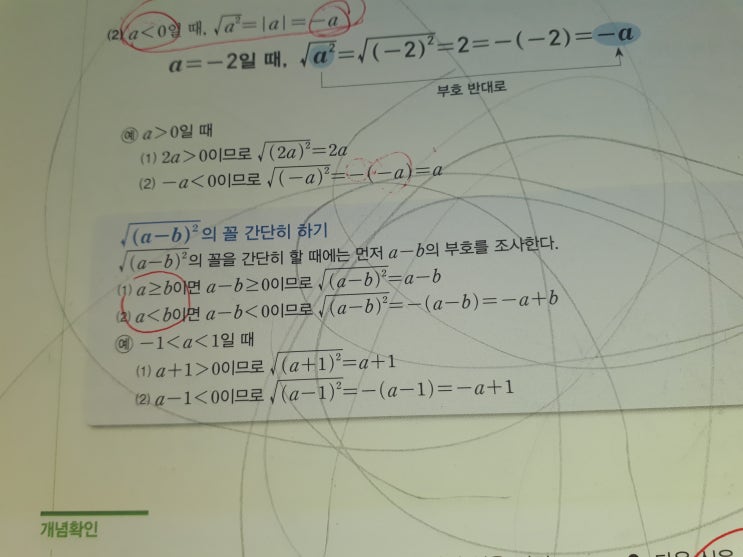 (2) a<0일 때, √a² = |a| = -a
a=-2일 때, √a²=√(-2)²=2=-(-2)=-a
부호 반대로
예 a>0일 때
(1) 2a>0이므로 √(2a)²=2a
(2) -a<0이므로 √(-a)²=-(-a)=a
√(a-b)²의 꼴 간단히 하기
√(a-b)²의 꼴을 간단히 할 때에는 먼저 a-b의 부호를 조사한다.
(1) a≥b이면 a-b≥0이므로 √(a-b)²=a-b
(2) a<b이면 a-b<0이므로 √(a-b)²=-(a-b)=-a+b
예 -1<a<1일 때
(1) a+1>0이므로 √(a+1)²=a+1
(2) a-1<0이므로 √(a-1)²=-(a-1)=-a+1
개념확인